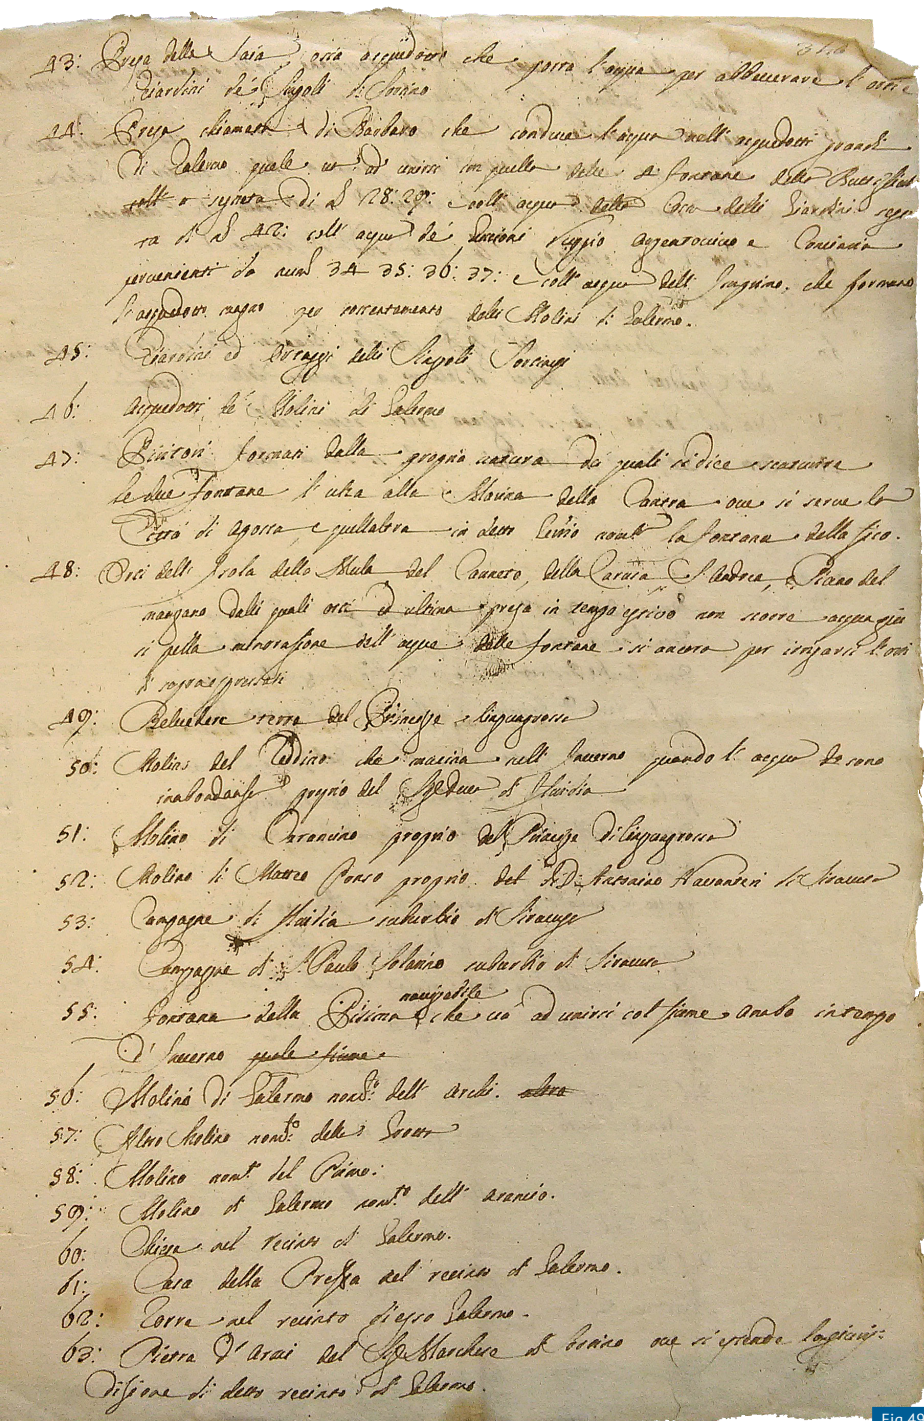 43: Presa della Saia, osia acquidotto che porta l'acqua per abbeverare l'orti e
Giardini de' Singoli di Sortino
44: Presa chiamata di Barbaro che conduce l'acqua nell'acquedotti grandi
di Galermo quale và ad unirsi con quella delle 4 fontane della
segreta di N. 28: 29: e coll'acqua delle delli Giardini segre
ta di N. 42: coll'acqua de' e
pervenienti da num. 34 35: 36: 37: e coll'acqua dell' che formano
l'acquedotto magno per delli Molini di Galermo.
45: Giardini ed delli Singoli
46: Acquedotti de' Molini di Galermo
47: formati dalla propria natura da quali si dice scaturire
le due fontane l'una alla Marina della ove si serve la
Città di Agosta, e quell'altra in detto nom.ta la fontana della fico.
48: Orti dell'Isola della Mula, del Canneto, della S. Andrea, e Piano del
manzano dalli quali orti ed ultima presa in tempo estivo non scorre acqua più
si pella dell'acque delle fontane si ancora per irrigarsi l'orti
sopraespressati
49: Belvedere terra del Principe Linguagrossa
50: Molino del che macina nell'Inverno quando l'acque sono
in abondanza proprio del Sig. Duca di Floridia
51: Molino di Tarantino proprio del Principe di Linguagrossa
52: Molino di Matteo Ponso proprio del D. Antonino Navanteri di Siracusa
53: Campagne di Floridia suburbio di Siracusa
54: Campagne di S. Paulo Solarino suburbio di Siracusa
navigabile
55: Fontana della Pisima che và ad unirsi col fiume Anabo in tempo
d'Inverno quale fiume
56: Molino di Galermo nom.to dell'Archi. altro
57: Altro Molino nom.to delle Grotte
58: Molino nom.to del Primo:
59: Molino di Galermo nom.to dell'Arancio.
60: Chiesa nel recinto di Galermo.
61: Casa della Pressa nel recinto di Galermo.
62: Torre nel recinto di esso Galermo.
63: Pietra d'Armi del Sig. Marchese di Sortino ove si estende la giuris:
dizione di detto recinto di Galermo.
Fig.49